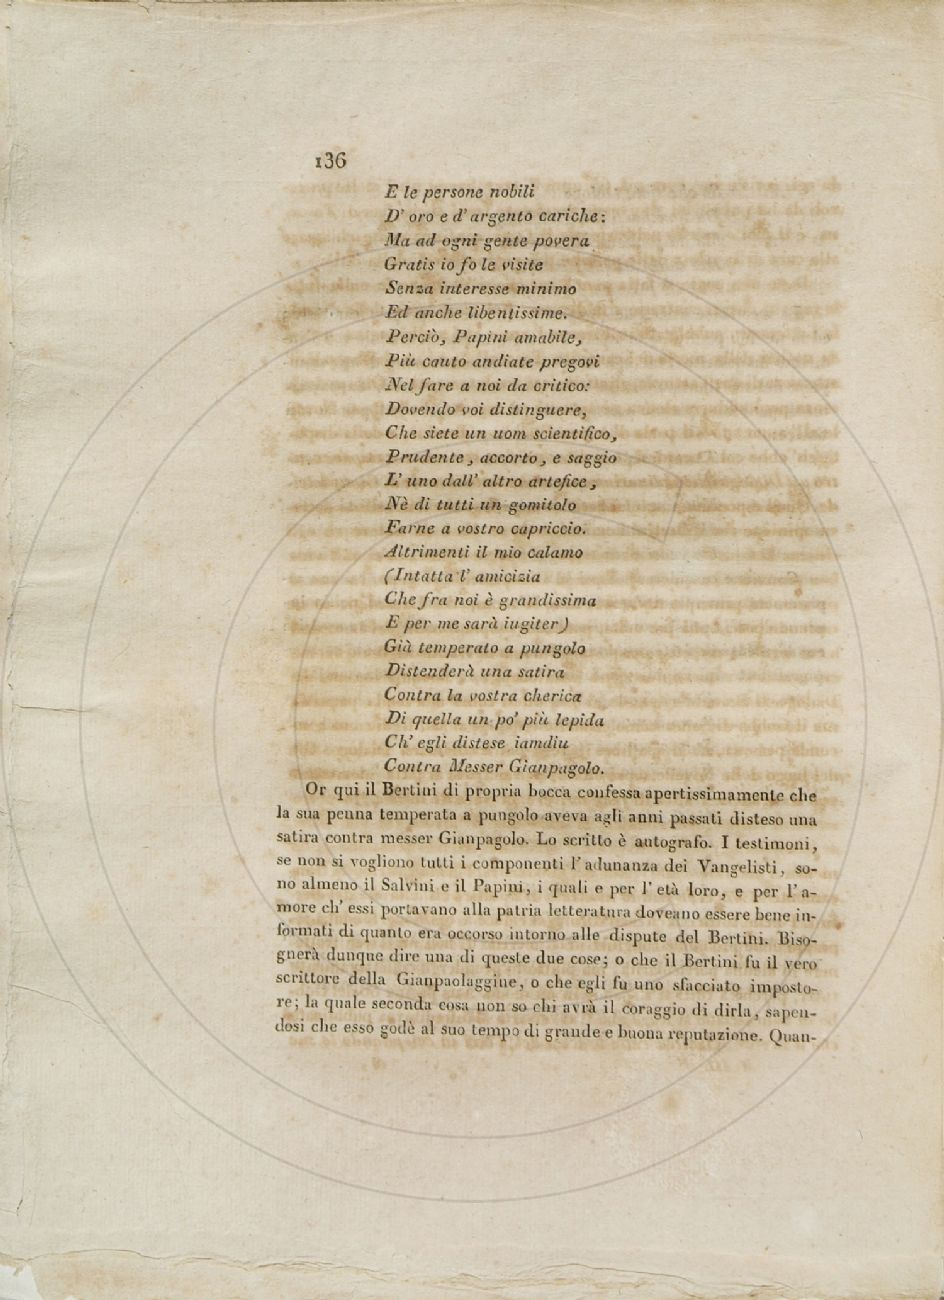 136
E le persone nobili
D' oro e d' argento cariche:
Ma ad ogni gente povera
Gratis io fo le visite
Senza interesse minimo
Ed anche libentissime.
Perciò, Papini amabile,
Più cauto andiate pregovi
Nel fare a noi da critico:
Dovendo voi distinguere,
Che siete un uom scientifico,
Prudente, accorto, e saggio
L' uno dall' altro artefice,
Nè di tutti un gomitolo
Farne a vostro capriccio.
Altrimenti il mio calamo
(Intatta l' amicizia
Che fra noi è grandissima
E per me sarà iugiter)
Già temperato a pungolo
Distenderà una satira
Contra la vostra cherica
Di quella un po' più lepida
Ch' egli distese iamdiu
Contra Messer Gianpagolo.
Or qui il Bertini di propria bocca confessa apertissimamente che
la sua penna temperata a pungolo aveva agli anni passati disteso una
satira contra messer Gianpagolo. Lo scritto è autografo. I testimoni,
se non si vogliono tutti i componenti l' adunanza dei Vangelisti, so-
no almeno il Salvini e il Papini, i quali e per l' età loro, e per l' a-
more ch' essi portavano alla patria letteratura doveano essere bene in-
formati di quanto era occorso intorno alle dispute del Bertini. Biso-
gnerà dunque dire una di queste due cose; o che il Bertini fu il vero
scrittore della Gianpaolaggine, o che egli fu uno sfacciato imposto-
re; la quale seconda cosa non so chi avrà il coraggio di dirla, sapen-
dosi che esso godè al suo tempo di grande e buona reputazione. Quan-